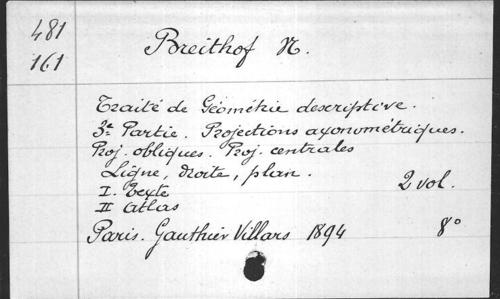 481
161
Breithof N.
Traité de Géométrie descriptive.
3e Partie. Projections axonométriques.
Proj. obliques. Proj. centrales
Ligne, droite, plan.
I. Texte 2 vol.
II Atlas
Paris. Gauthier Villars 1894 8°